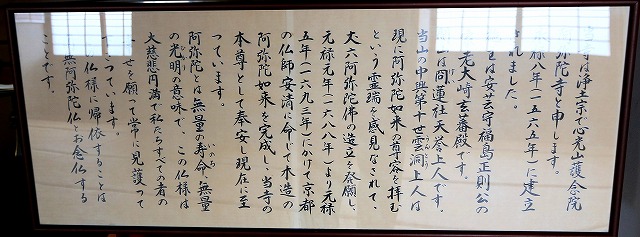 寺は浄土宗で心光山護念院
弥陀寺と申します。
禄八年(一五六五年)に建立
されました。
主は安芸守福島正則公の
老大崎玄蕃殿です。
山は同蓮社天誉上人です。
当山の中興第十世雲洞上人は
うんどう
現に阿弥陀如来の尊容を拝む
という霊瑞を感見なされて、
丈六阿弥陀佛の造立を発願し、
元禄元年(一六八八年)より元禄
五年(一六九二年)にかけて京都
の仏師安清に命じて木造の
阿弥陀如来を完成し、当寺の
本尊として奉安し現在に至
っています。
阿弥陀とは無量の寿命、無量
いのち
の光明の意味で、この仏様は
大慈悲円満で私たちすべての者の
せを願って常に見護って
さっています。
仏様に帰依することは
無阿弥陀仏とお念仏する
ことです。